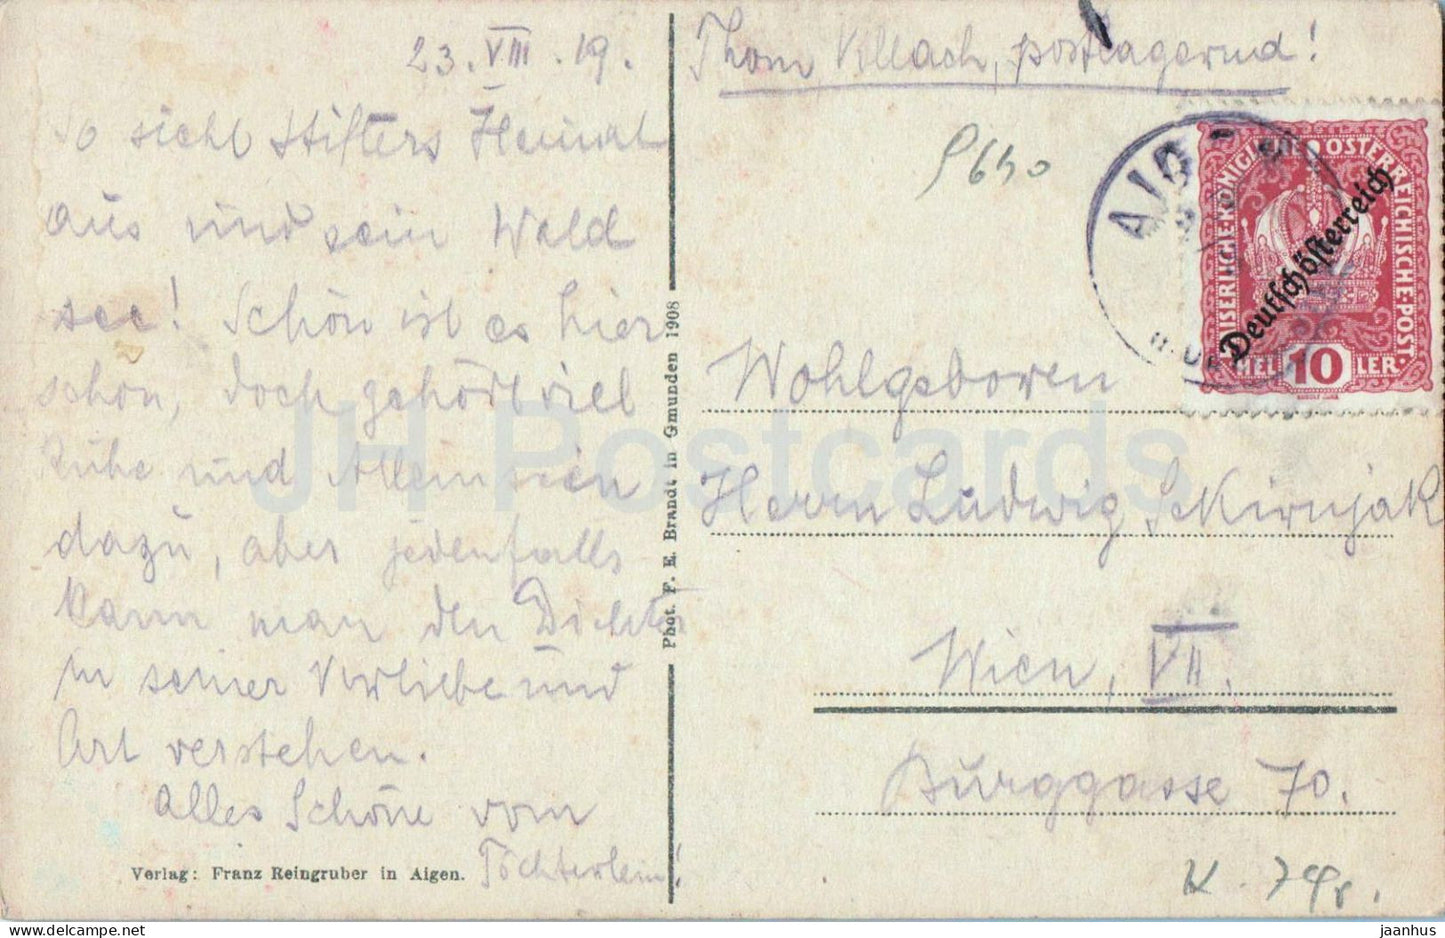 23. VIII. 19.
So sieht Stifters Heimat
aus und sein Wald
see! Schön ist es hier
schön, doch gehört viel
Ruhe und Alleinsein
dazu, aber jedenfalls
kann man den Dichter
in seiner Vorliebe und
Art verstehen.
Alles Schöne vom
Töchterlein!
Verlag: Franz Reingruber in Aigen.
Phot. F. E. Brandt in Gmunden 1908
postlagernd!
P640
KAISERLICHE·KÖNIGLICHE ÖSTERREICHISCHE·POST·
Deutschösterreich
10
HELLER
AIG
Wohlgeboren
Herrn Ludwig Sekirnjak
Wien, VII.
Burggasse 70.
JH Postcards
jaanhu.com